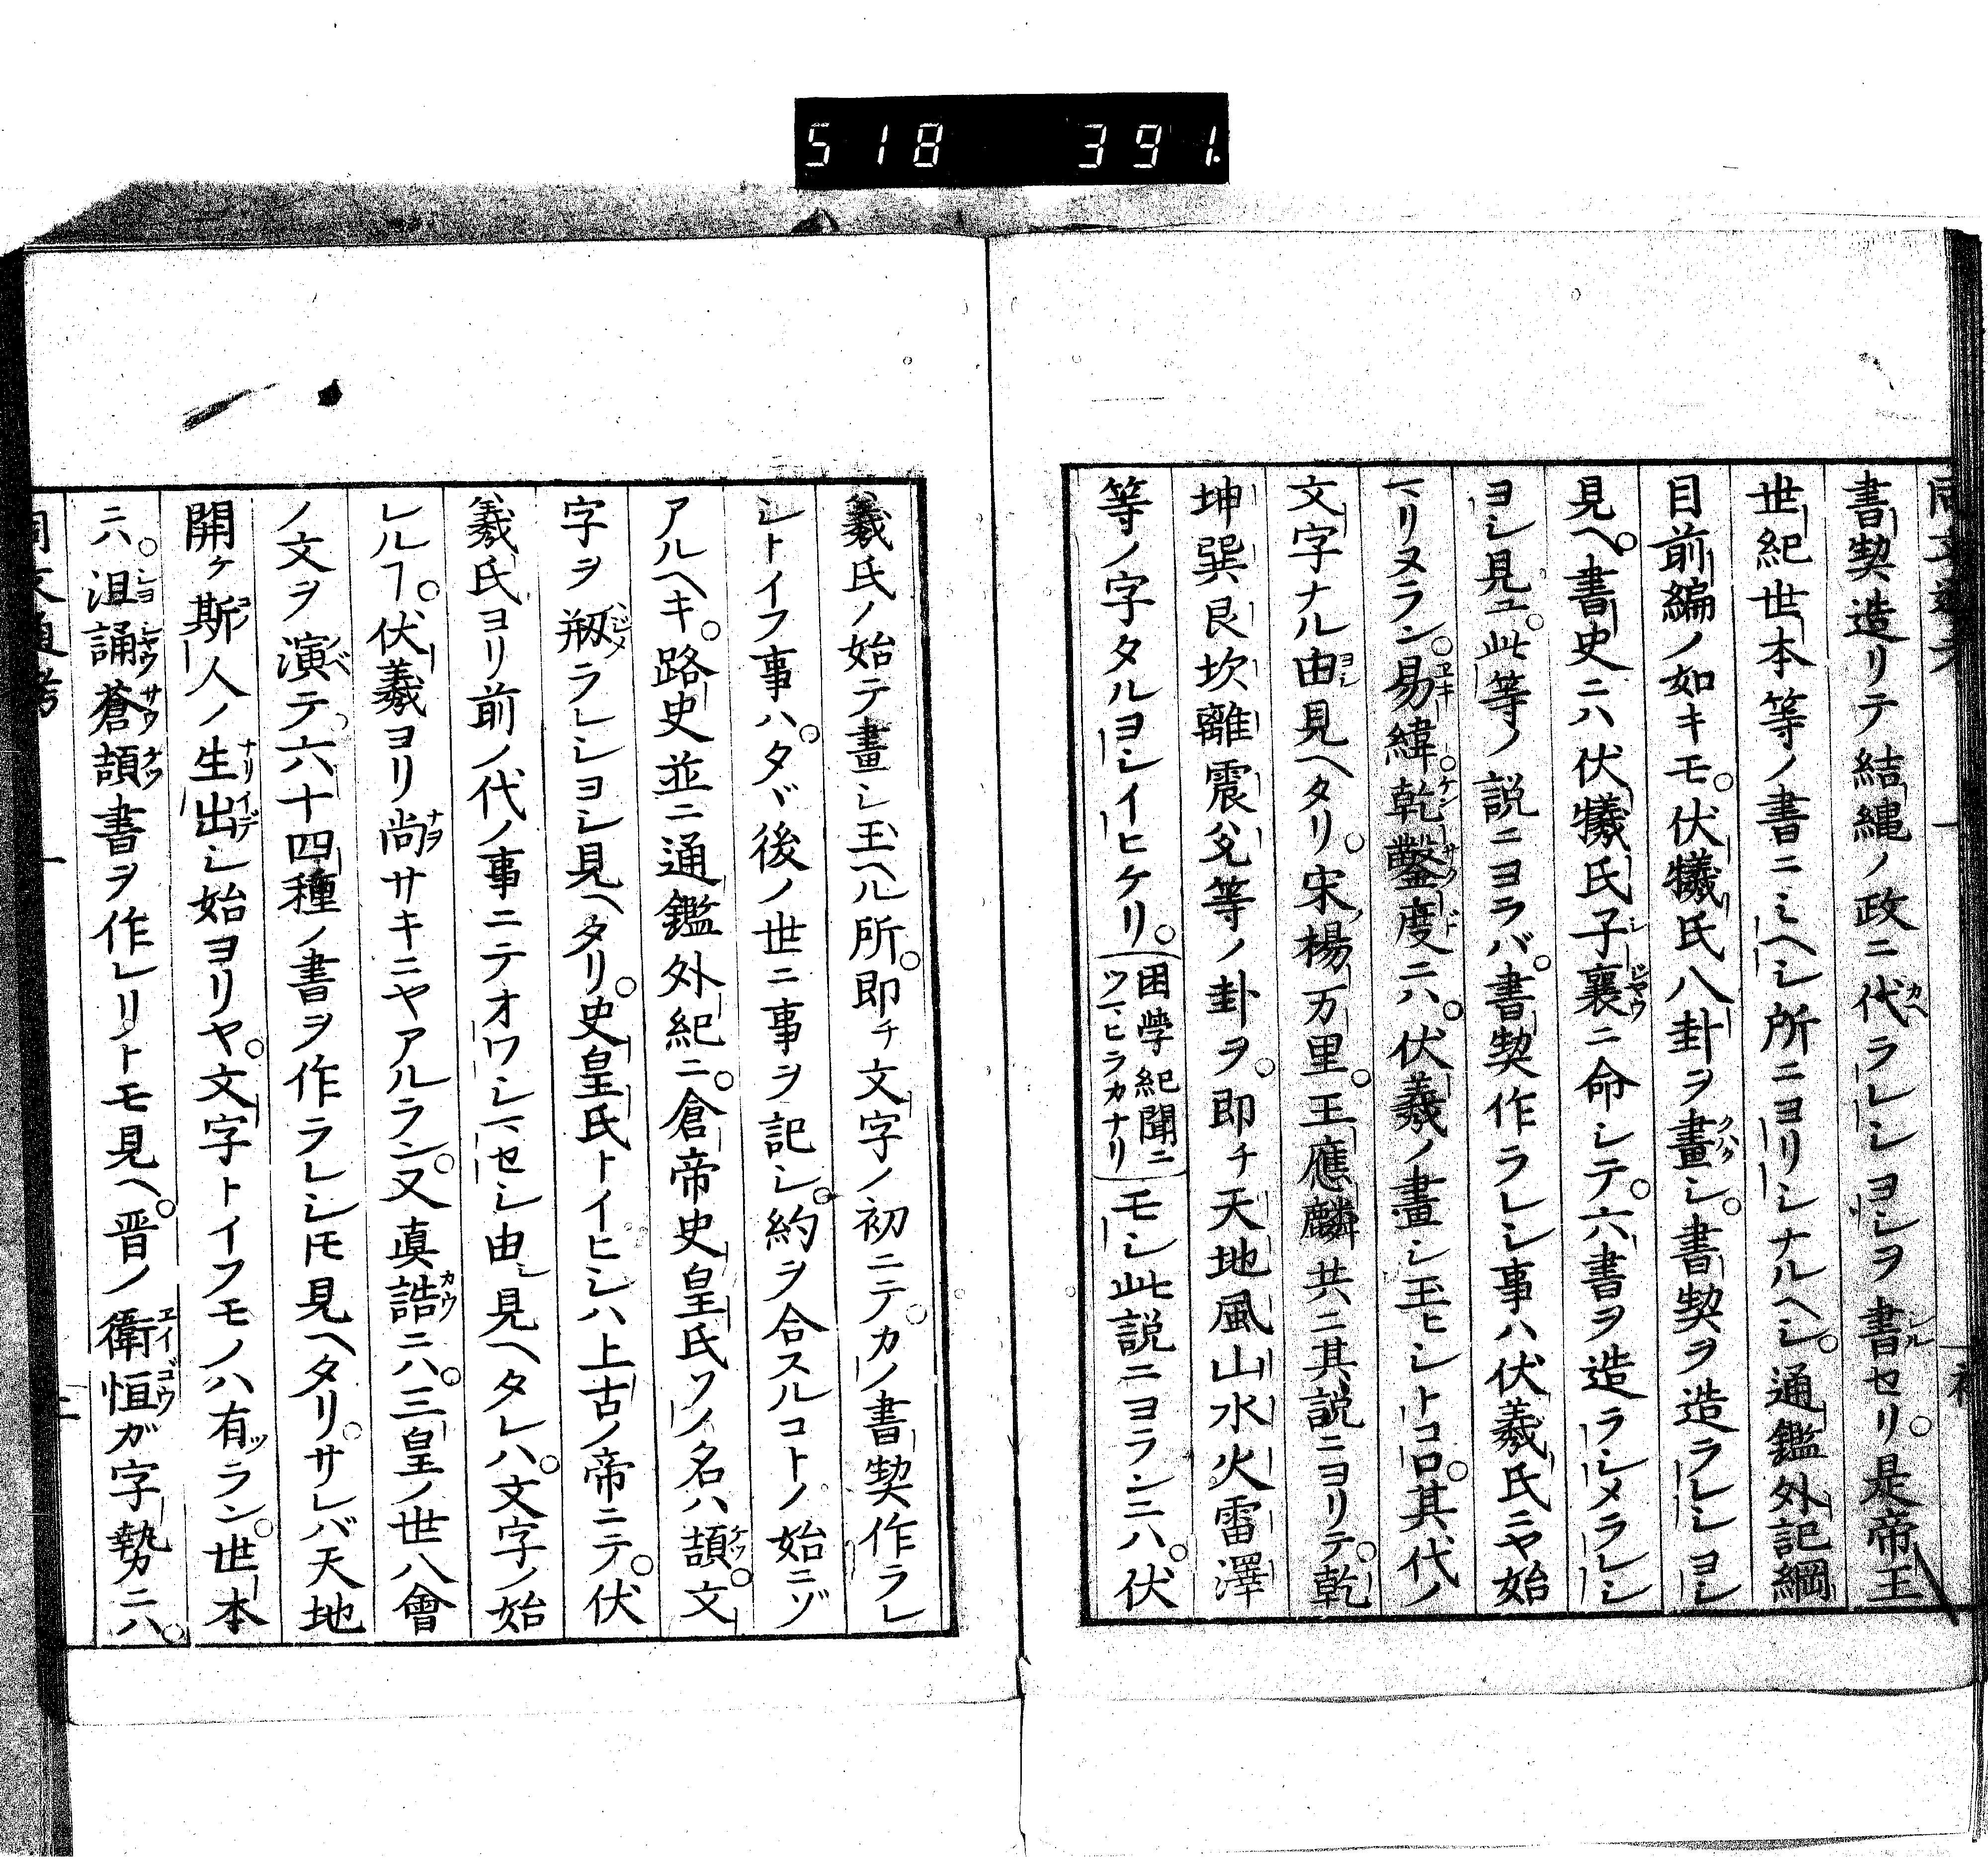 518 391.
書契造リテ結縄ノ政ニ代ラレシヨシヲ書セリ。是帝王
世紀世本等ノ書ニミヘシ所ニヨリシナルヘシ。通鑑外記綱
目前編ノ如キモ。伏犠氏八卦ヲ畫シ。書契ヲ造ラレシヨシ
見ヘ。書史ニハ伏犠氏子襄ニ命シテ。六書ヲ造ラシメラレシ
ヨシ見ユ。此等ノ説ニヨラバ。書契作ラレシ事ハ伏羲氏ニヤ始
マリヌラン。易緯乾鑿度ニハ。伏羲ノ畫シ玉ヒシトコロ。其代ノ
文字ナル由見ヘタリ。宋楊万里。王應麟共ニ其説ニヨリテ。乾
坤巽艮坎離震兌等ノ卦ヲ。即チ天地風山水火雷澤
等ノ字タルヨシイヒケリ。(困学紀聞ニツマヒラカナリ)モシ此説ニヨランニハ。伏
羲氏ノ始テ畫シ玉ヘル所。即チ文字ノ初ニテ。カノ書契作ラレ
シトイフ事ハ。タヾ後ノ世ニ事ヲ記シ。約ヲ合スルコトノ始ニゾ
アルヘキ。路史並ニ通鑑外紀ニ。倉帝史皇氏ソノ名ハ頡。文
字ヲ剏ラレシヨシ見ヘタリ。史皇氏トイヒシハ上古ノ帝ニテ。伏
羲氏ヨリ前ノ代ノ事ニテオワシマセシ由見ヘタレハ。文字ノ始
レルヿ。伏羲ヨリ尚サキニヤアルラン。又真誥ニハ。三皇ノ世八會
ノ文ヲ演テ。六十四種ノ書ヲ作ラレシトモ見ヘタリ。サレバ天地
開ケ斯人ノ生出シ始ヨリヤ。文字トイフモノハ有ツラン。世本
ニハ。沮誦蒼頡書ヲ作レリトモ見ヘ。晋ノ衛恒ガ字勢ニハ。